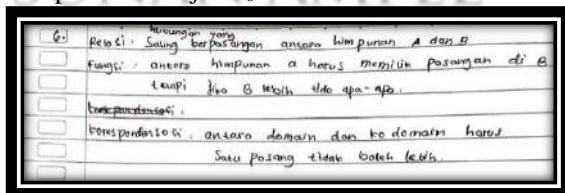 6.
hubungan yang
Relasi : Saling berpasangan antara himpunan A dan B
Fungsi : antara himpunan a harus memiliki pasangan di B
tetapi jika B lebih tdo apa-apa.
korespondensi :
korespondensosi : antara domain dan ko domain harus
Satu pasang tidak boleh lebih.